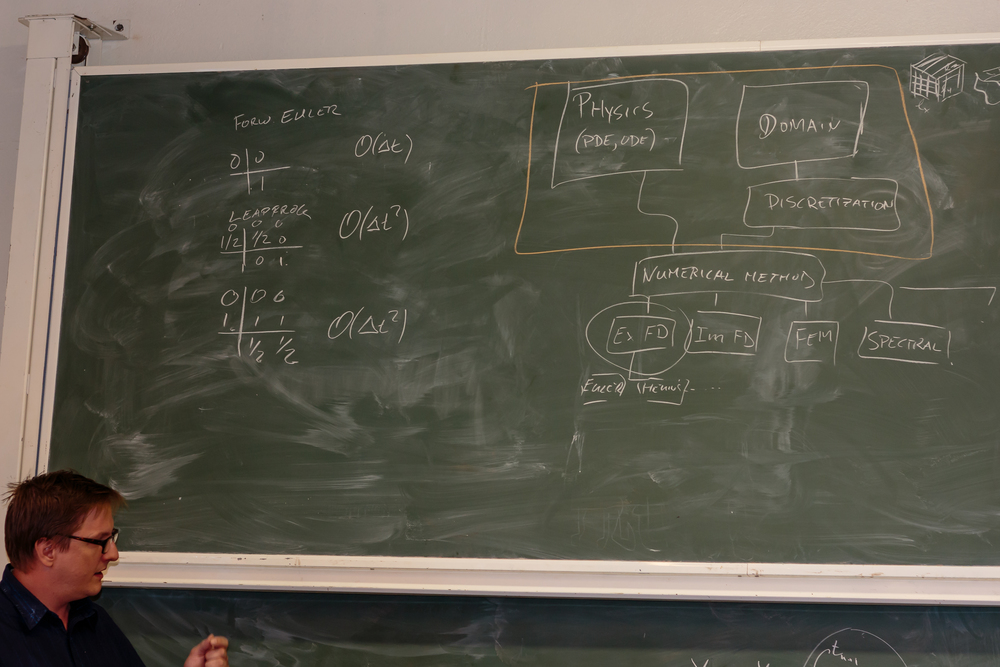 FORW EULER
0 | 0
| 1
O(Δt)
LEAPFROG
0 | 0 0
1/2 | 1/2 0
| 0 1
O(Δt²)
0 | 0 0
1 | 1 1
| 1/2 1/2
O(Δt²)
PHYSICS
(PDE, ODE)
DOMAIN
DISCRETIZATION
NUMERICAL METHOD
Ex FD
Im FD
FEM
SPECTRAL
EULER
HEUN'S
....
t n+1